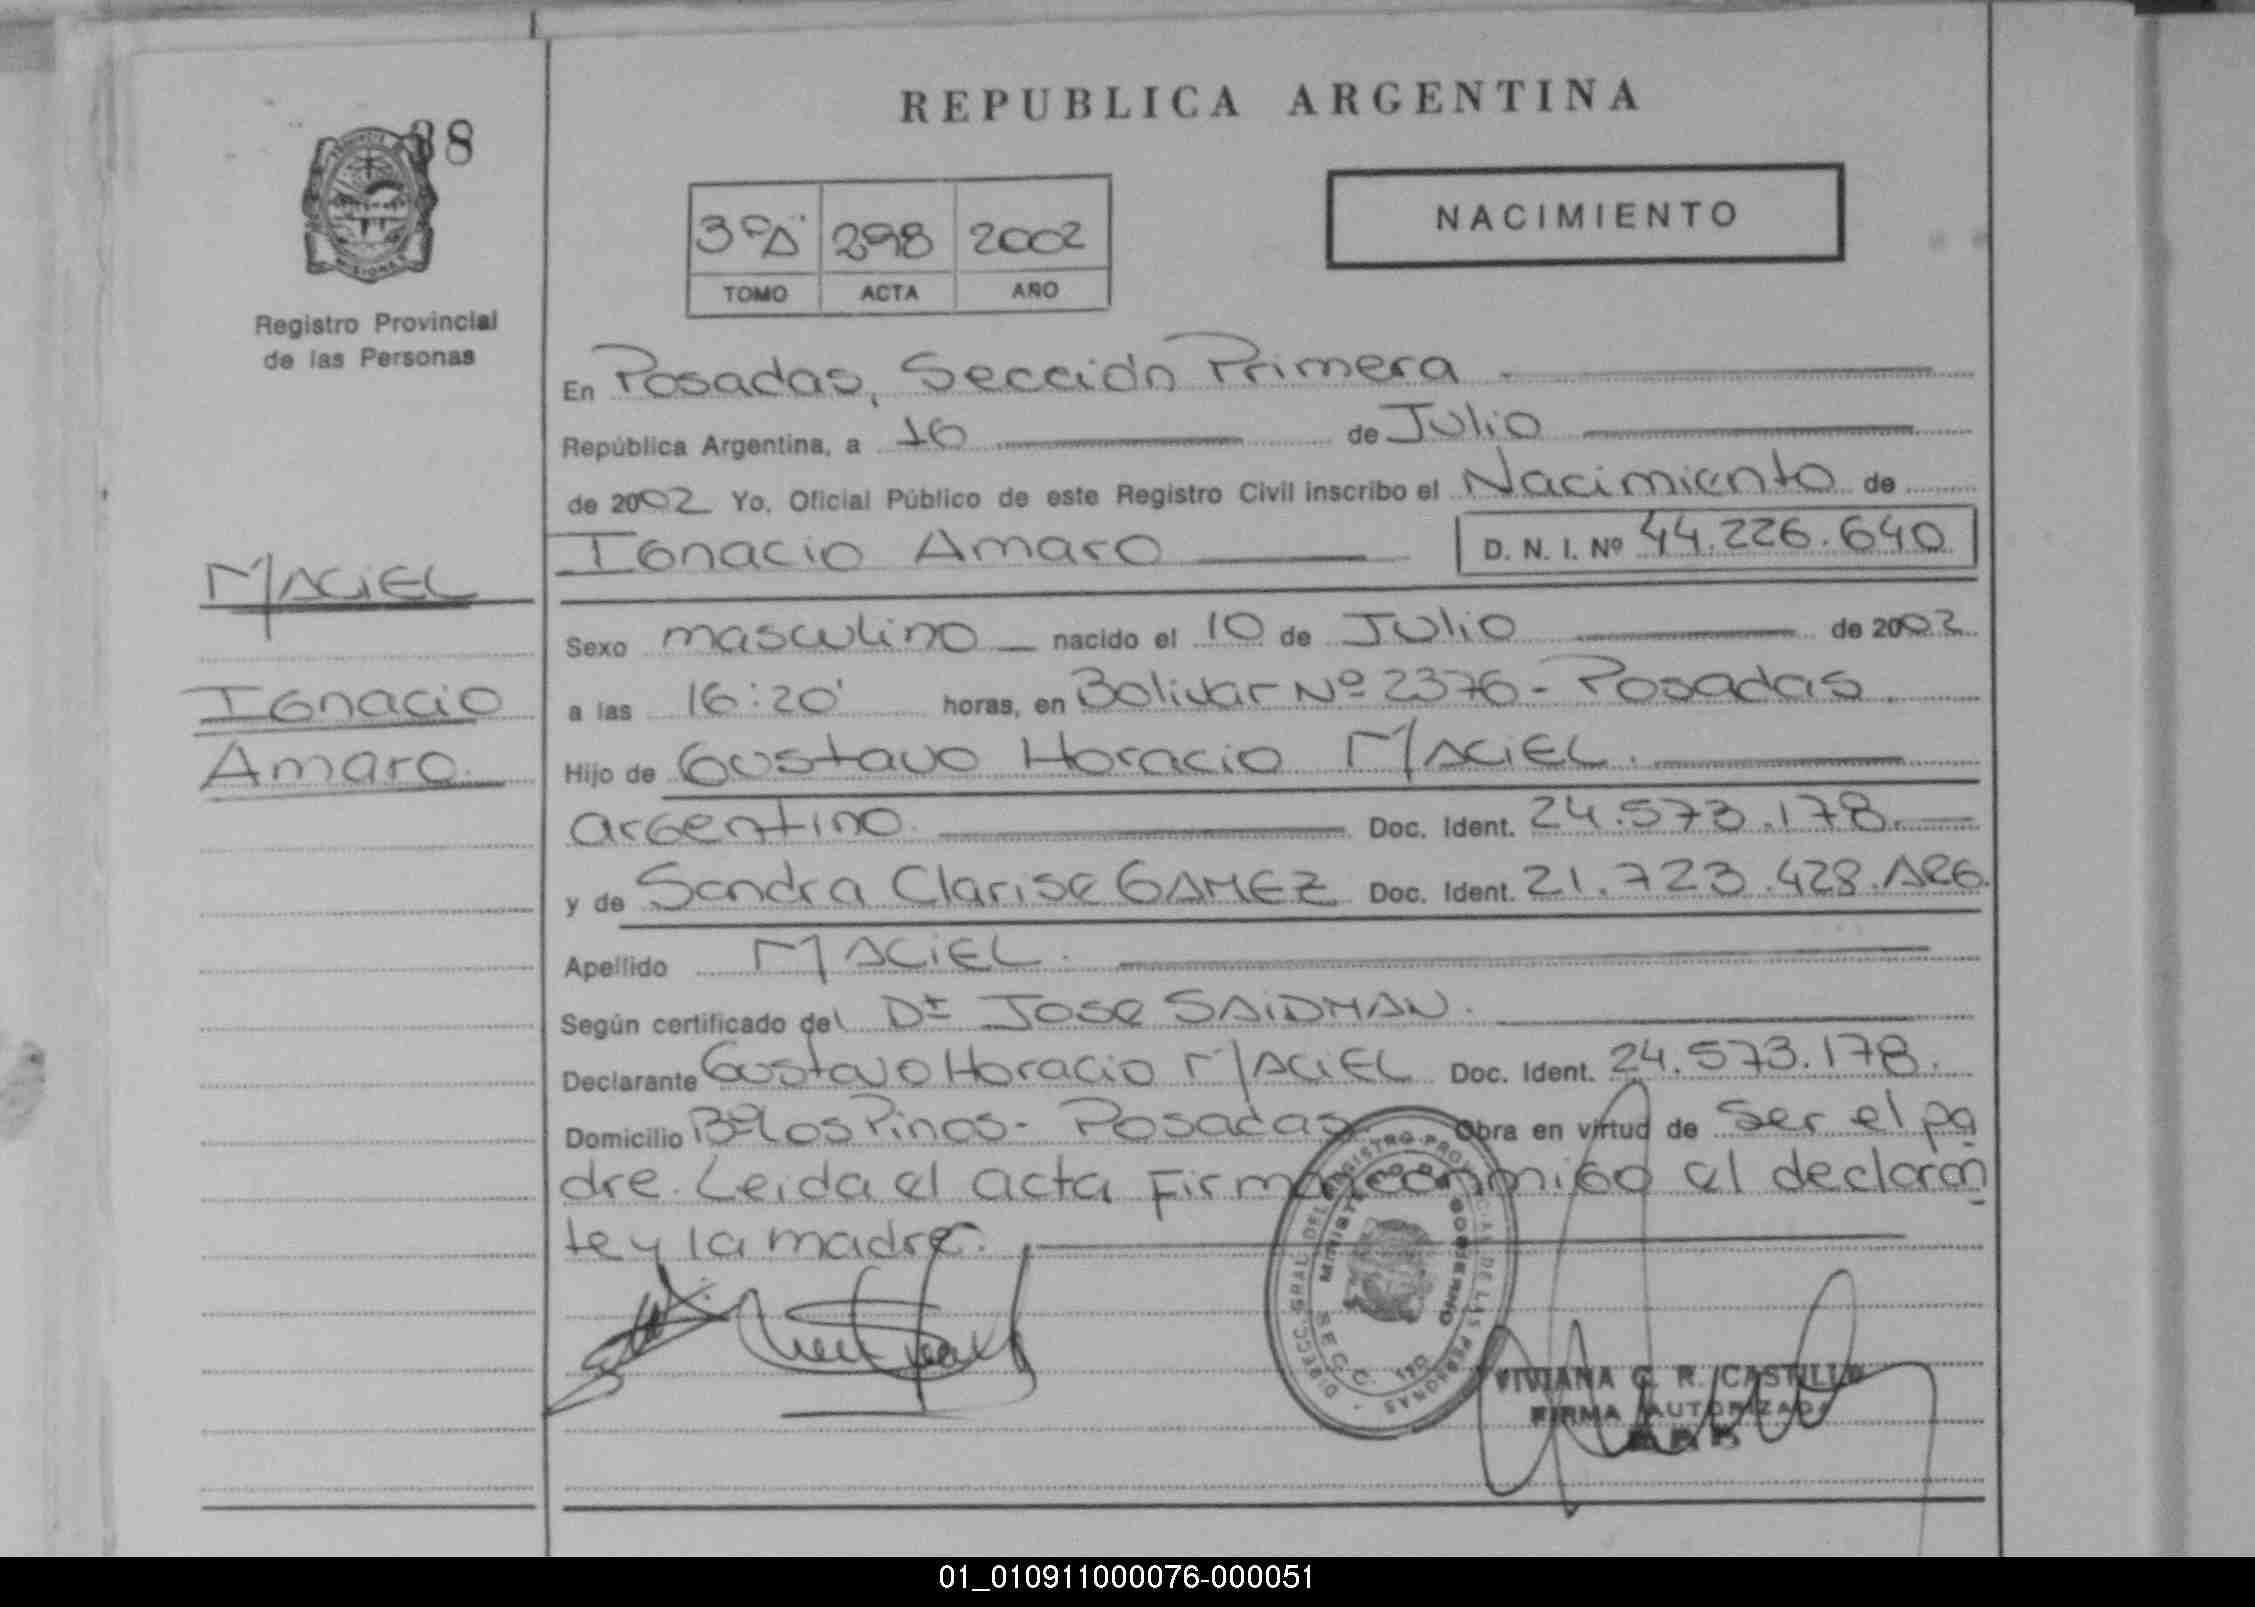 REPUBLICA ARGENTINA
38
NACIMIENTO
3ºA 298 2002
TOMO ACTA AÑO
Registro Provincial
de las Personas
En Posadas, Sección Primera
República Argentina, a 16 de Julio
de 2002 Yo, Oficial Público de este Registro Civil inscribo el Nacimiento de
Ignacio Amaro D. N. I. Nº 44.226.640
MACiEL
Ignacio
Amaro
Sexo masculino nacido el 10 de Julio de 2002
a las 16:20' horas, en Bolivar Nº 2376 - Posadas.
Hijo de Gustavo Horacio MACiEL.
argentino. Doc. Ident. 24.573.178.
y de Sandra Clarise GAMEZ Doc. Ident. 21.723.428. ARG.
Apellido MACiEL.
Según certificado del Dr Jose SAiDMAN.
Declarante Gustavo Horacio MACiEL Doc. Ident. 24.573.178.
Domicilio Bº Los Pinos - Posadas Obra en virtud de Ser el pa
dre. Leida el acta Firman conmigo el declaran
te y la madre.
DIRECC. GRAL. DEL REGISTRO PROVINCIAL DE LAS PERSONAS
MINISTERIO DE GOBIERNO
SECC. 1RO
VIVIANA G. R. CASTILLO
FIRMA AUTORIZADA
01_010911000076-000051